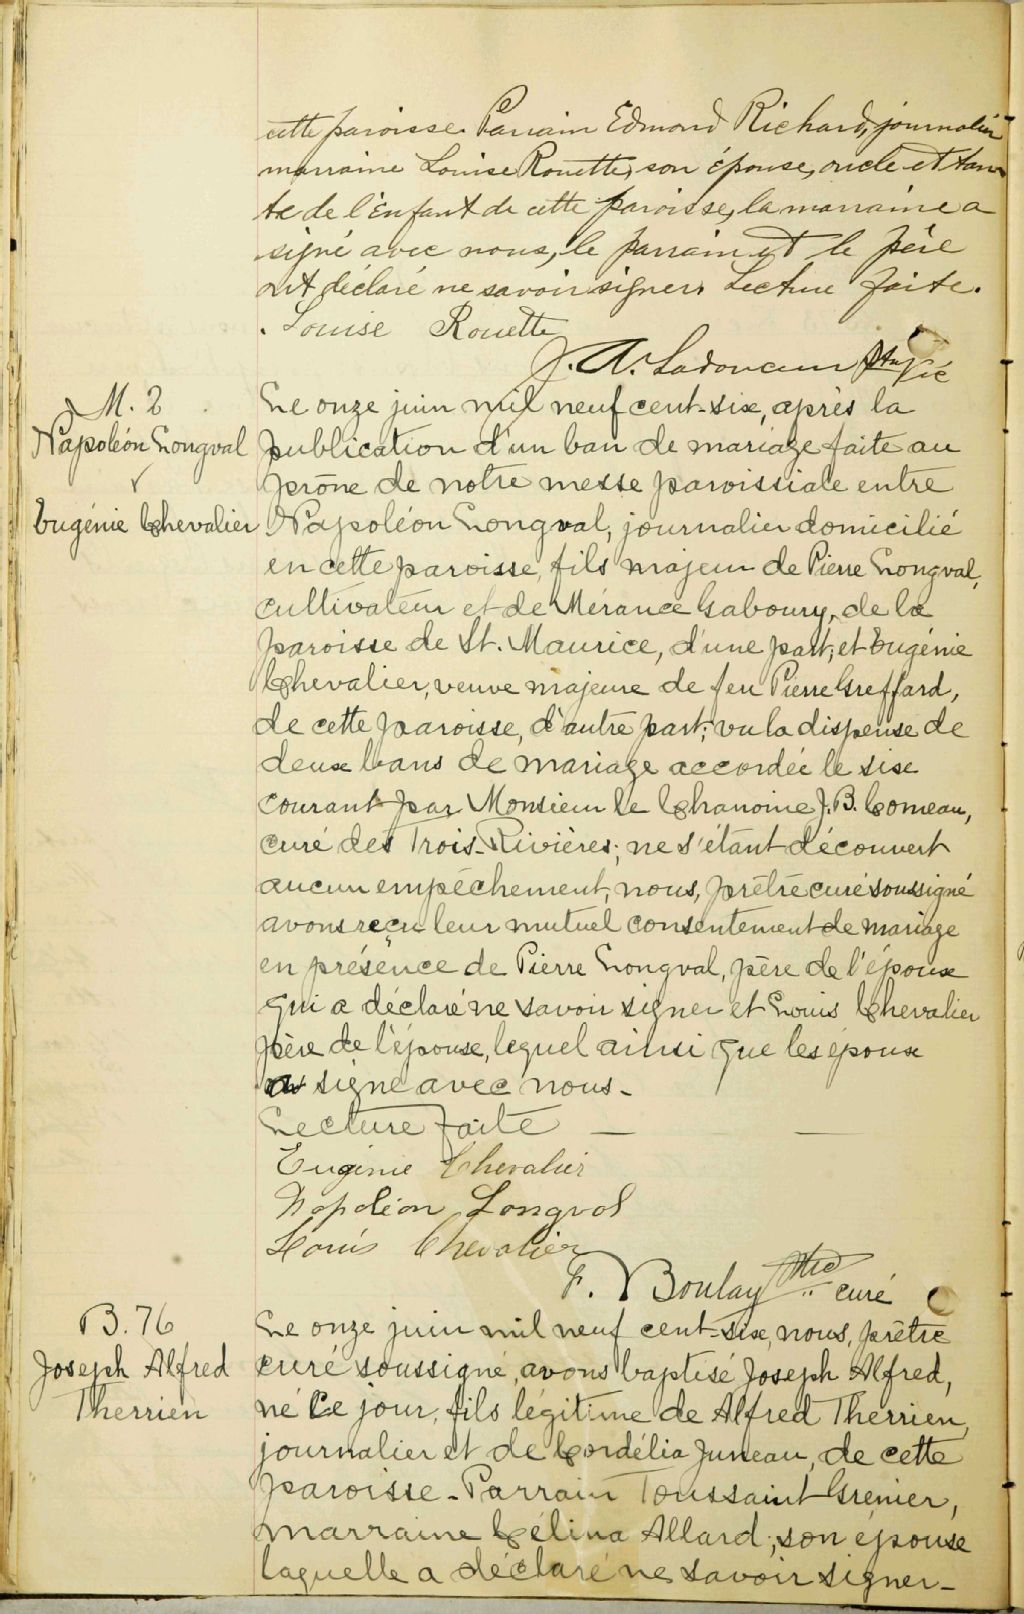 cette paroisse. Parrain Edmond Richard, journalier
marraine Louise Rouette, son épouse, oncle et tan-
te de l'Enfant de cette paroisse, la marraine a
signé avec nous, le parrain et le père
ont déclaré ne savoir signer. Lecture faite.
Louise Rouette
J. A. Ladouceur Ptre Vic
M. 2
Napoléon Longval
Eugénie Chevalier
Le onze juin mil neuf cent-six, après la
publication d'un ban de mariage faite au
prône de notre messe paroissiale entre
Napoléon Longval, journalier domicilié
en cette paroisse, fils majeur de Pierre Longval,
cultivateur et de Mérance Gaboury, de la
paroisse de St. Maurice, d'une part; et Eugénie
Chevalier, veuve majeure de feu Pierre Greffard,
de cette paroisse, d'autre part; vu la dispense de
deux bans de mariage accordée le six
courant par Monsieur le Chanoine J. B. Comeau,
curé des Trois-Rivières; ne s'étant découvert
aucun empêchement, nous, prêtre curé soussigné
avons reçu leur mutuel consentement de mariage
en présence de Pierre Longval, père de l'époux
qui a déclaré ne savoir signer et Louis Chevalier
père de l'épouse, lequel ainsi que les époux
signé avec nous-
Lecture faite —
Eugénie Chevalier
Napoléon Longval
Louis Chevalier
F. Boulay Ptre curé
B. 76
Joseph Alfred
Therrien
Le onze juin mil neuf cent-six, nous, prêtre
curé soussigné, avons baptisé Joseph Alfred,
né ce jour, fils légitime de Alfred Therrien,
journalier et de Cordélia Juneau, de cette
paroisse - Parrain Toussaint Grenier,
marraine Célina Allard, son épouse
laquelle a déclaré ne savoir signer-